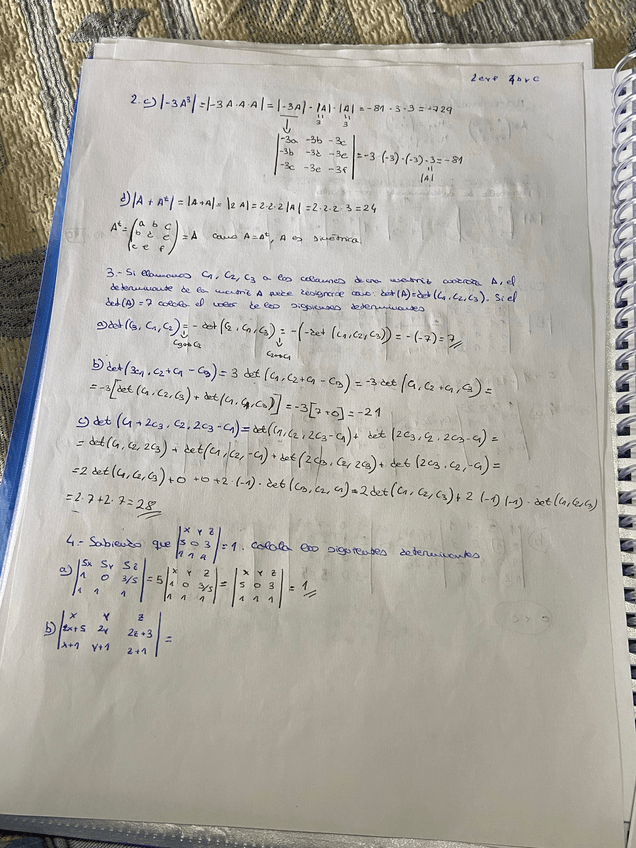 2. c) |-3A³| = |-3A·A·A| = |-3A| · |A| · |A| = -81·3·3 = -729
3 3
|-3a -3b -3c|
|-3b -3d -3e| = -3·(-3)·(-3)·3 = -81
|-3c -3e -3f| |A|
d) |A + Aᵗ| = |A+A| = |2A| = 2·2·2|A| = 2·2·2·3 = 24
Aᵗ = (a b c
b d e = A como A=Aᵗ, A es simétrica
c e f)
3.- Si llamamos C₁, C₂, C₃ a las columnas de una matriz A, el
determinante de la matriz A puede como: det(A)=det(C₁, C₂, C₃). Si el
det(A) = 7 calcula el valor de los siguientes determinantes
a) det(C₃, C₁, C₂) = - det(C₂, C₁, C₃) = -(-det(C₁, C₂, C₃)) = -(-7) = 7
b) det(3C₁, C₂+C₁ - C₃) = 3 det(C₁, C₂+C₁ - C₃) = -3 det(C₁, C₂+C₁, C₃) =
= -3[det(C₁, C₂, C₃) + det(C₁, C₁, C₃)] = -3[7+0] = -21
c) det(C₁+2C₃, C₂, 2C₃-C₁) = det(C₁, C₂, 2C₃-C₁) + det(2C₃, C₂, 2C₃-C₁) =
= det(C₁, C₂, 2C₃) + det(C₁, C₂, -C₁) + det(2C₃, C₂, 2C₃) + det(2C₃, C₂, -C₁) =
= 2 det(C₁, C₂, C₃) + 0 + 0 + 2·(-1)·det(C₃, C₂, C₁) = 2 det(C₁, C₂, C₃) + 2(-1)(-1)·det(C₁, C₂, C₃)
= 2·7+2·7 = 28
4.- Sabiendo que |x y z| |5 0 3| |1 1 1| = 1. Calcula los siguientes determinantes
a) |5x 5y 5z| |1 0 3/5| |1 1 1| = 5 |x y z| |1 0 3/5| |1 1 1| = |x y z| |5 0 3| |1 1 1| = 1
b) |x y z|
|2x+5 2y 2z+3| =
|x+1 y+1 z+1|